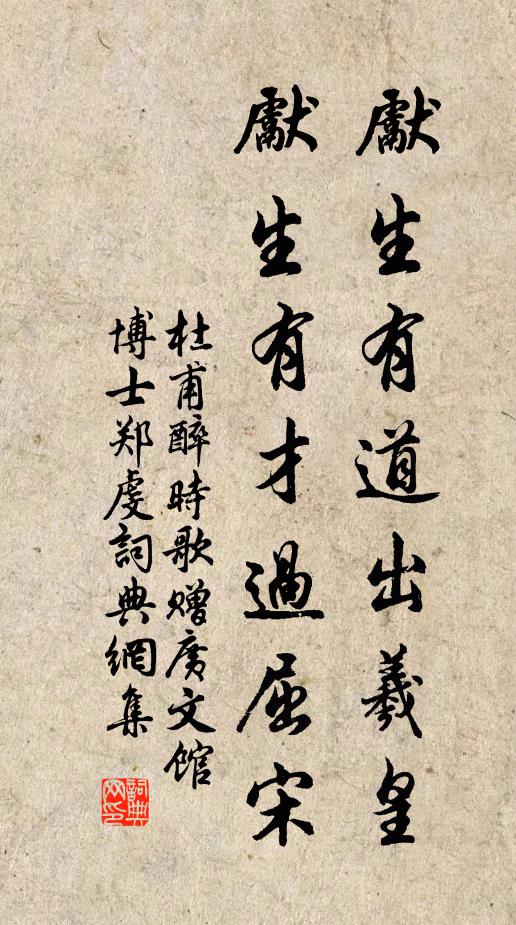 獻生有道出羲皇
獻生有才過屈宋
杜甫醉時歌贈廣文馆
博士郑虔詞典網集
詞典
网印